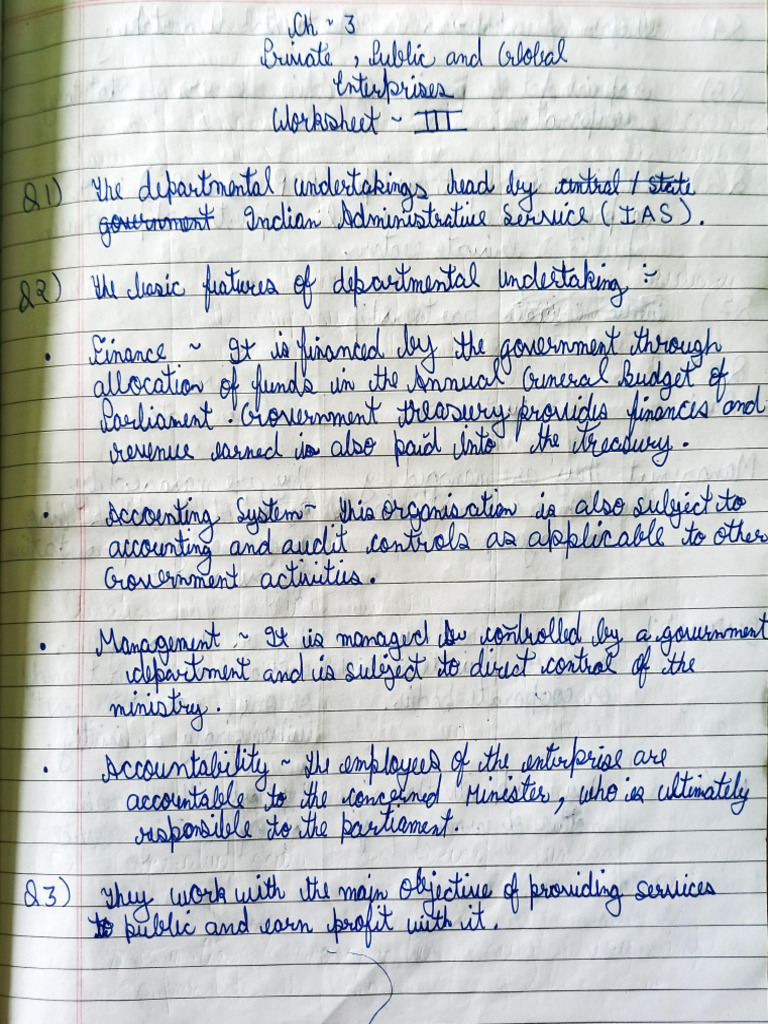 Ch ~ 3
Private , Public and Global
Enterprises
Worksheet ~ III
Q1) The departmental undertakings head by central / state
government Indian Administrative Service (IAS).
Q2) The basic features of departmental undertaking :-
• Finance ~ It is financed by the government through
allocation of funds in the Annual General Budget of
Parliament. Government treasury provides finances and
revenue earned is also paid into the treasury.
• Accounting System - This organisation is also subject to
accounting and audit controls as applicable to other
Government activities.
• Management ~ It is managed controlled by a government
department and is subject to direct control of the
ministry.
• Accountability ~ The employees of the enterprise are
accountable to the concerned Minister, who is ultimately
responsible to the partiament.
Q3) They work with the main objective of providing services
to public and earn profit with it.